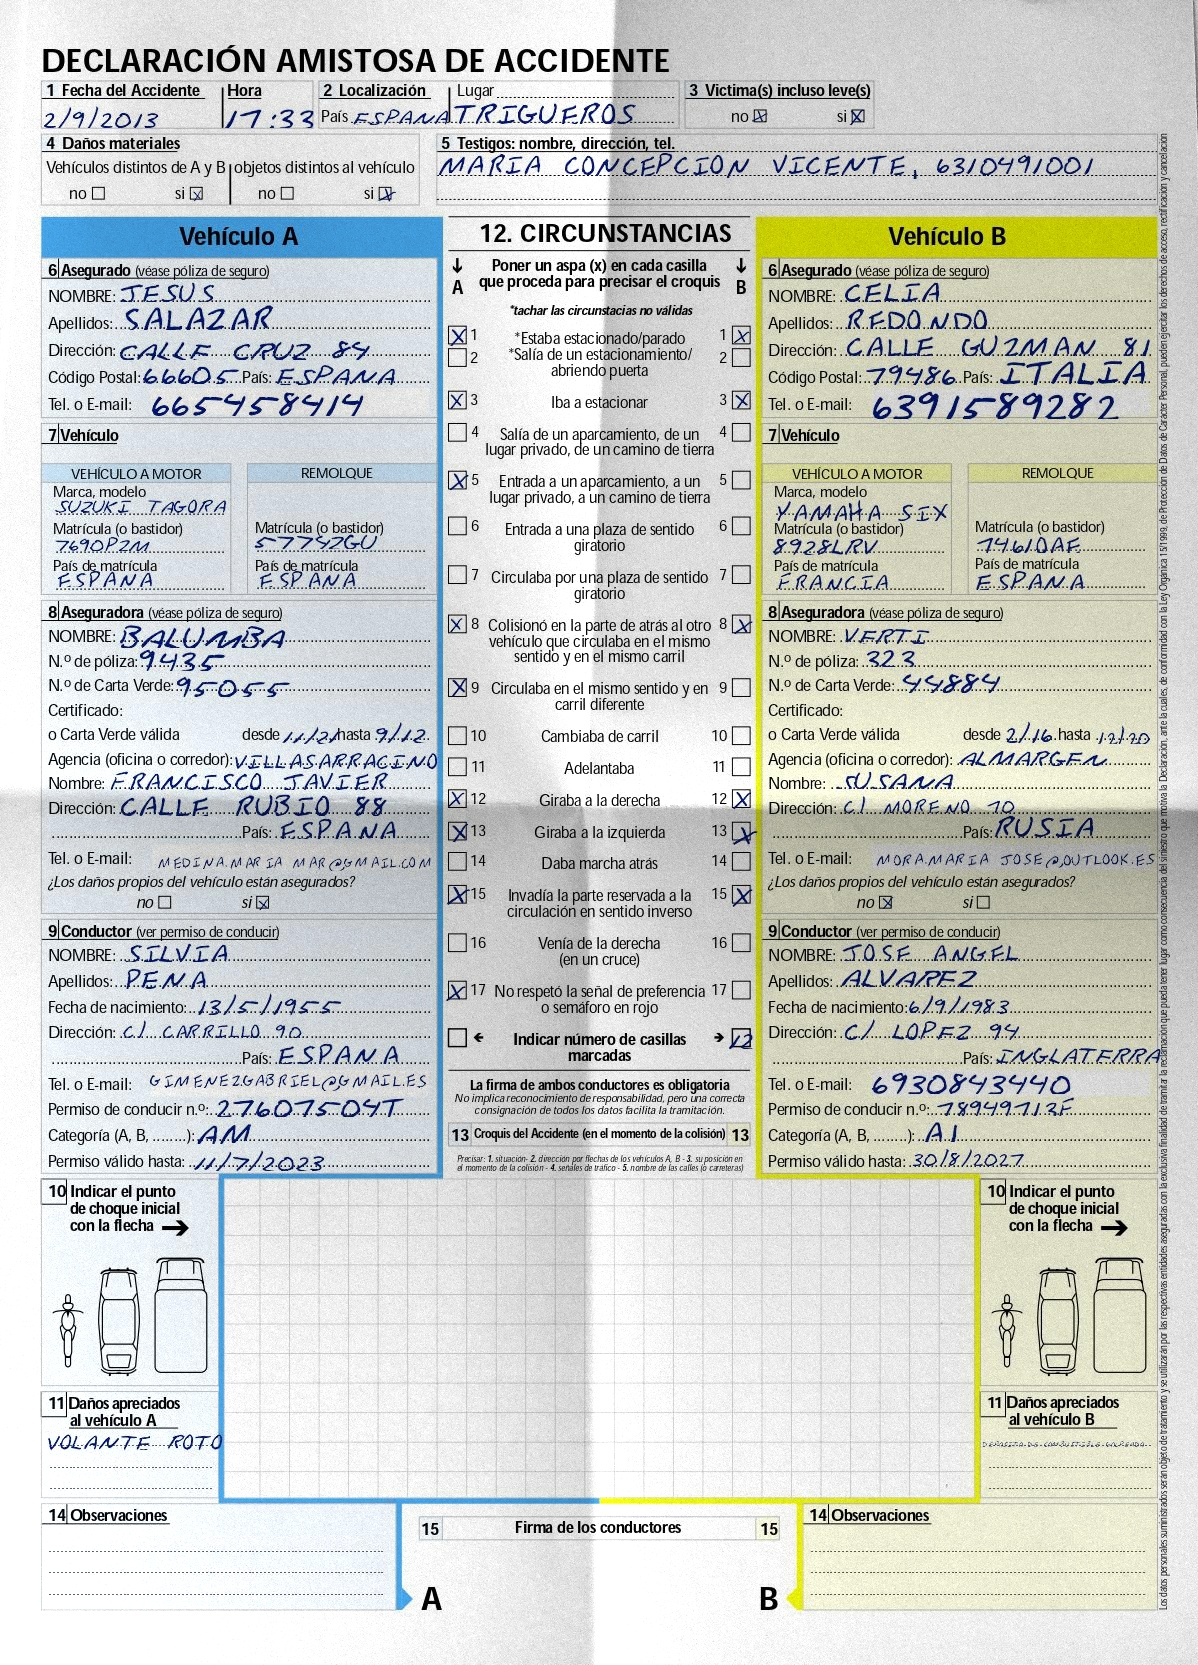 DECLARACIÓN AMISTOSA DE ACCIDENTE
1 Fecha del Accidente Hora 2 Localización Lugar 3 Victima(s) incluso leve(s)
2/9/2013 17:33 País ESPANA TRIGUEROS no si
4 Daños materiales 5 Testigos: nombre, dirección, tel.
Vehículos distintos de A y B objetos distintos al vehículo MARIA CONCEPCION VICENTE, 6310491001
no si no si
Vehículo A
6 Asegurado (véase póliza de seguro)
NOMBRE: JESUS
Apellidos: SALAZAR
Dirección: CALLE CRUZ 84
Código Postal: 66605 País: ESPANA
Tel. o E-mail: 665458414
7 Vehículo
VEHÍCULO A MOTOR REMOLQUE
Marca, modelo
SUZUKI TAGORA
Matrícula (o bastidor) Matrícula (o bastidor)
7690PZM 57752GU
País de matrícula País de matrícula
ESPANA ESPANA
8 Aseguradora (véase póliza de seguro)
NOMBRE: BALUMBA
N.º de póliza: 9435
N.º de Carta Verde: 95055
Certificado:
o Carta Verde válida desde 11/21 hasta 9/12
Agencia (oficina o corredor): VILLASARRACINO
Nombre: FRANCISCO JAVIER
Dirección: CALLE RUBIO 88
País: ESPANA
Tel. o E-mail: MEDINA.MARIA MAR@GMAIL.COM
¿Los daños propios del vehículo están asegurados?
no si
9 Conductor (ver permiso de conducir)
NOMBRE: SILVIA
Apellidos: PENA
Fecha de nacimiento: 13/5/1955
Dirección: C/ CARRILLO 90
País: ESPANA
Tel. o E-mail: GIMENEZGABRIEL@GMAIL.ES
Permiso de conducir n.º: 27607504T
Categoría (A, B, ........): AM
Permiso válido hasta: 11/7/2023
12. CIRCUNSTANCIAS
A Poner un aspa (x) en cada casilla que proceda para precisar el croquis B
*tachar las circunstacias no válidas
1 *Estaba estacionado/parado 1
2 *Salía de un estacionamiento/ abriendo puerta 2
3 Iba a estacionar 3
4 Salía de un aparcamiento, de un lugar privado, de un camino de tierra 4
5 Entrada a un aparcamiento, a un lugar privado, a un camino de tierra 5
6 Entrada a una plaza de sentido giratorio 6
7 Circulaba por una plaza de sentido giratorio 7
8 Colisionó en la parte de atrás al otro vehículo que circulaba en el mismo sentido y en el mismo carril 8
9 Circulaba en el mismo sentido y en carril diferente 9
10 Cambiaba de carril 10
11 Adelantaba 11
12 Giraba a la derecha 12
13 Giraba a la izquierda 13
14 Daba marcha atrás 14
15 Invadía la parte reservada a la circulación en sentido inverso 15
16 Venía de la derecha (en un cruce) 16
17 No respetó la señal de preferencia o semáforo en rojo 17
Indicar número de casillas marcadas 12
La firma de ambos conductores es obligatoria
No implica reconocimiento de responsabilidad, pero una correcta
consignación de todos los datos facilita la tramitación.
13 Croquis del Accidente (en el momento de la colisión) 13
Precisar: 1. situación- 2. dirección por flechas de los vehículos A, B - 3. su posición en
el momento de la colisión - 4. señales de tráfico - 5. nombre de las calles (o carreteras)
Vehículo B
6 Asegurado (véase póliza de seguro)
NOMBRE: CELIA
Apellidos: REDONDO
Dirección: CALLE GUZMAN 81
Código Postal: 79486 País: ITALIA
Tel. o E-mail: 6391589282
7 Vehículo
VEHÍCULO A MOTOR REMOLQUE
Marca, modelo
YAMAHA SIX
Matrícula (o bastidor) Matrícula (o bastidor)
8928LRV 7461DAE
País de matrícula País de matrícula
FRANCIA ESPANA
8 Aseguradora (véase póliza de seguro)
NOMBRE: VERTI
N.º de póliza: 323
N.º de Carta Verde: 44884
Certificado:
o Carta Verde válida desde 2/16 hasta 12/20
Agencia (oficina o corredor): ALMARGEN
Nombre: SUSANA
Dirección: C/ MORENO 70
País: RUSIA
Tel. o E-mail: MORA.MARIA JOSE@OUTLOOK.ES
¿Los daños propios del vehículo están asegurados?
no si
9 Conductor (ver permiso de conducir)
NOMBRE: JOSE ANGEL
Apellidos: ALVAREZ
Fecha de nacimiento: 6/9/1983
Dirección: C/ LOPEZ 94
País: INGLATERRA
Tel. o E-mail: 6930843440
Permiso de conducir n.º: 78949713F
Categoría (A, B, ........): A1
Permiso válido hasta: 30/8/2027
10 Indicar el punto de choque inicial con la flecha
11 Daños apreciados al vehículo A
VOLANTE ROTO
10 Indicar el punto de choque inicial con la flecha
11 Daños apreciados al vehículo B
14 Observaciones
15 Firma de los conductores 15
A B
14 Observaciones
Los datos personales suministrados serán objeto de tratamiento y se utilizarán por las respectivas entidades aseguradas con la exclusiva finalidad de tramitar la reclamación que pueda tener lugar como consecuencia del siniestro que motiva la Declaración, ante la cuales, de conformidad con la Ley Orgánica 15/1999, de Protección de Datos de Carácter Personal, pueden ejercitar los derechos de acceso, rectificación y cancelación